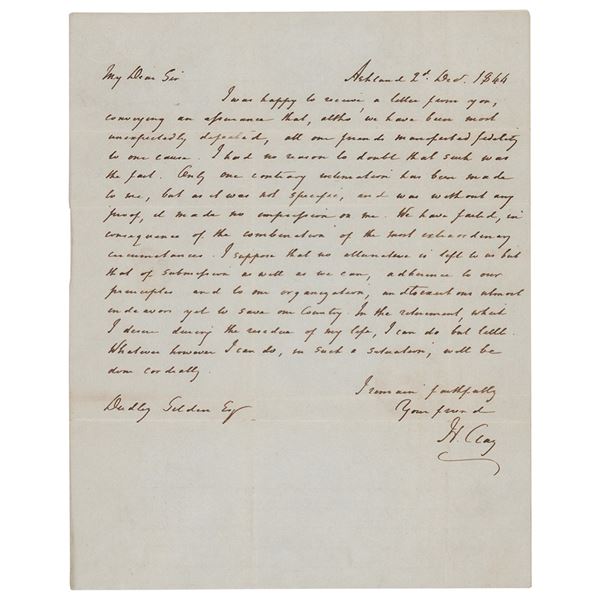 My Dear Sir Ashland 2d. Dec. 1844
I was happy to receive a letter from you,
conveying an assurance that, altho' we have been most
unexpectedly defeated, all our friends manifested fidelity
to our cause. I had no reason to doubt that such was
the fact. Only one contrary intimation has been made
to me, but as it was not specific, and was without any
proof, it made no impression on me. We have failed, in
consequence of the combination of the most extraordinary
circumstances. I suppose that no alternative is left to us but
that of submission as well as we can, adherence to our
principles and to our organization, and to exert our utmost
endeavors yet to save our Country. In the retirement, which
I desire during the residue of my life, I can do but little.
Whatever however I can do, in such a situation, will be
done cordially.
I remain faithfully
Your friend
H. Clay
Dudley Selden Esq